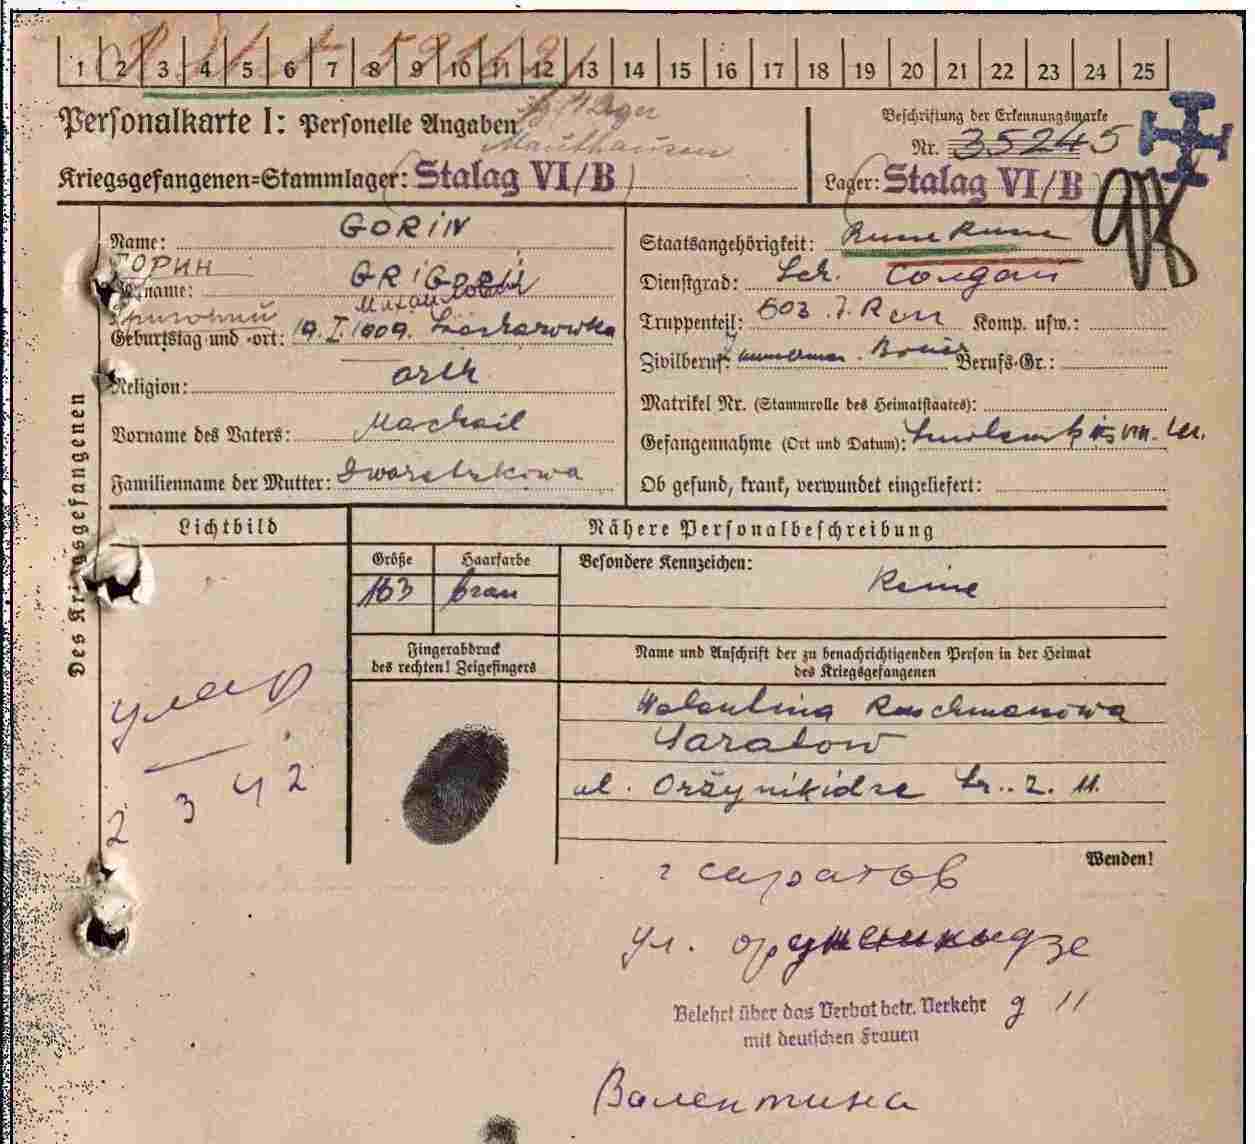 1 2 3 4 5 6 7 8 9 10 11 12 13 14 15 16 17 18 19 20 21 22 23 24 25
Personalkarte I: Personelle Angaben
Mauthausen
Beschriftung der Erkennungsmarke
Nr. 35245
Kriegsgefangenen=Stammlager: Stalag VI/B
Lager: Stalag VI/B
Des Kriegsgefangenen
Name: GORIN
ГОРИН
Vorname: GRIGORIJ
Михайлович
Григорий
Geburtstag und -ort: 19. I. 1909.
Religion: orth
Vorname des Vaters: Machail
Familienname der Mutter: Dworetzkowa
Staatsangehörigkeit: Russe Russe
Dienstgrad: Солдат
Truppenteil: 503. J. Ren Komp. usw.:
Zivilberuf: Berufs-Gr.:
Matrikel Nr. (Stammrolle des Heimatstaates):
Gefangennahme (Ort und Datum): Smolensk
Ob gesund, krank, verwundet eingeliefert:
Lichtbild
Nähere Personalbeschreibung
Größe
163
Haarfarbe
brau
Besondere Kennzeichen: Keine
Fingerabdruck
des rechten! Zeigefingers
Name und Anschrift der zu benachrichtigenden Person in der Heimat
des Kriegsgefangenen
Walentina Raschmanowa
Saratow
ul. Oržynikidze
умер
2 3 42
Wenden!
г саратов
ул. оруженикыдзе
g 11
Belehrt über das Verbot betr. Verkehr
mit deutschen Frauen
Валентина